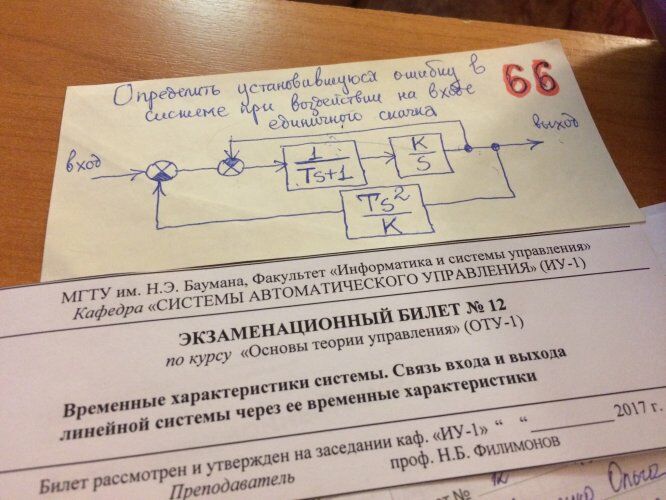 Определить установившуюся ошибку в
системе при воздействии на входе
единичного скачка
66
вход
выход
1
Ts+1
K
S
Ts²
K
МГТУ им. Н.Э. Баумана, Факультет «Информатика и системы управления»
Кафедра «СИСТЕМЫ АВТОМАТИЧЕСКОГО УПРАВЛЕНИЯ» (ИУ-1)
ЭКЗАМЕНАЦИОННЫЙ БИЛЕТ № 12
по курсу «Основы теории управления» (ОТУ-1)
Временные характеристики системы. Связь входа и выхода
линейной системы через ее временные характеристики
Билет рассмотрен и утвержден на заседании каф. «ИУ-1» “ “ ________ 2017 г.
Преподаватель проф. Н.Б. Филимонов
№ 12
Ольга